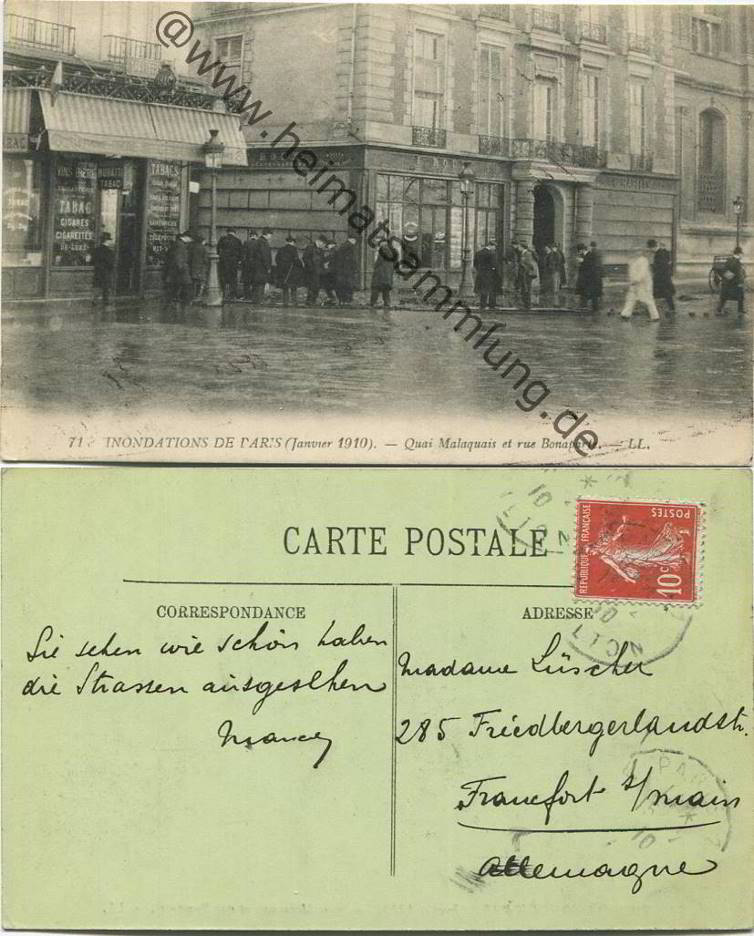 VINS BIÈRE
TABAC
CIGARES
CIGARETTES
DE LUXE
TABAC
TABACS
@www.heimatsammlung.de
71. INONDATIONS DE PARIS (Janvier 1910). — Quai Malaquais et rue Bonaparte. — LL.
CARTE POSTALE
POSTES
REPUBLIQUE FRANÇAISE
10c
CORRESPONDANCE
ADRESSE
Sie sehen wie schön haben
die Strassen ausgesehen
Nancy
Madame Lüscher
285 Friedbergerlandstr.
Francfort s/main
Allemagne
PARIS